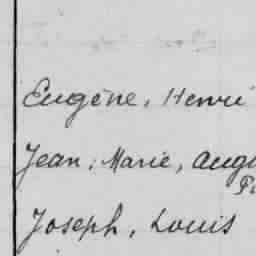 Eugène, Henri
Jean, Marie,
Joseph, Louis